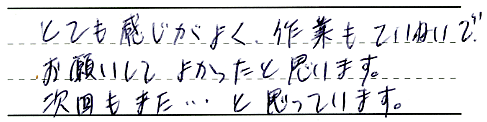 とても感じがよく、作業もていねいで、
お願いして よかったと思います。
次回もまた… と思っています。